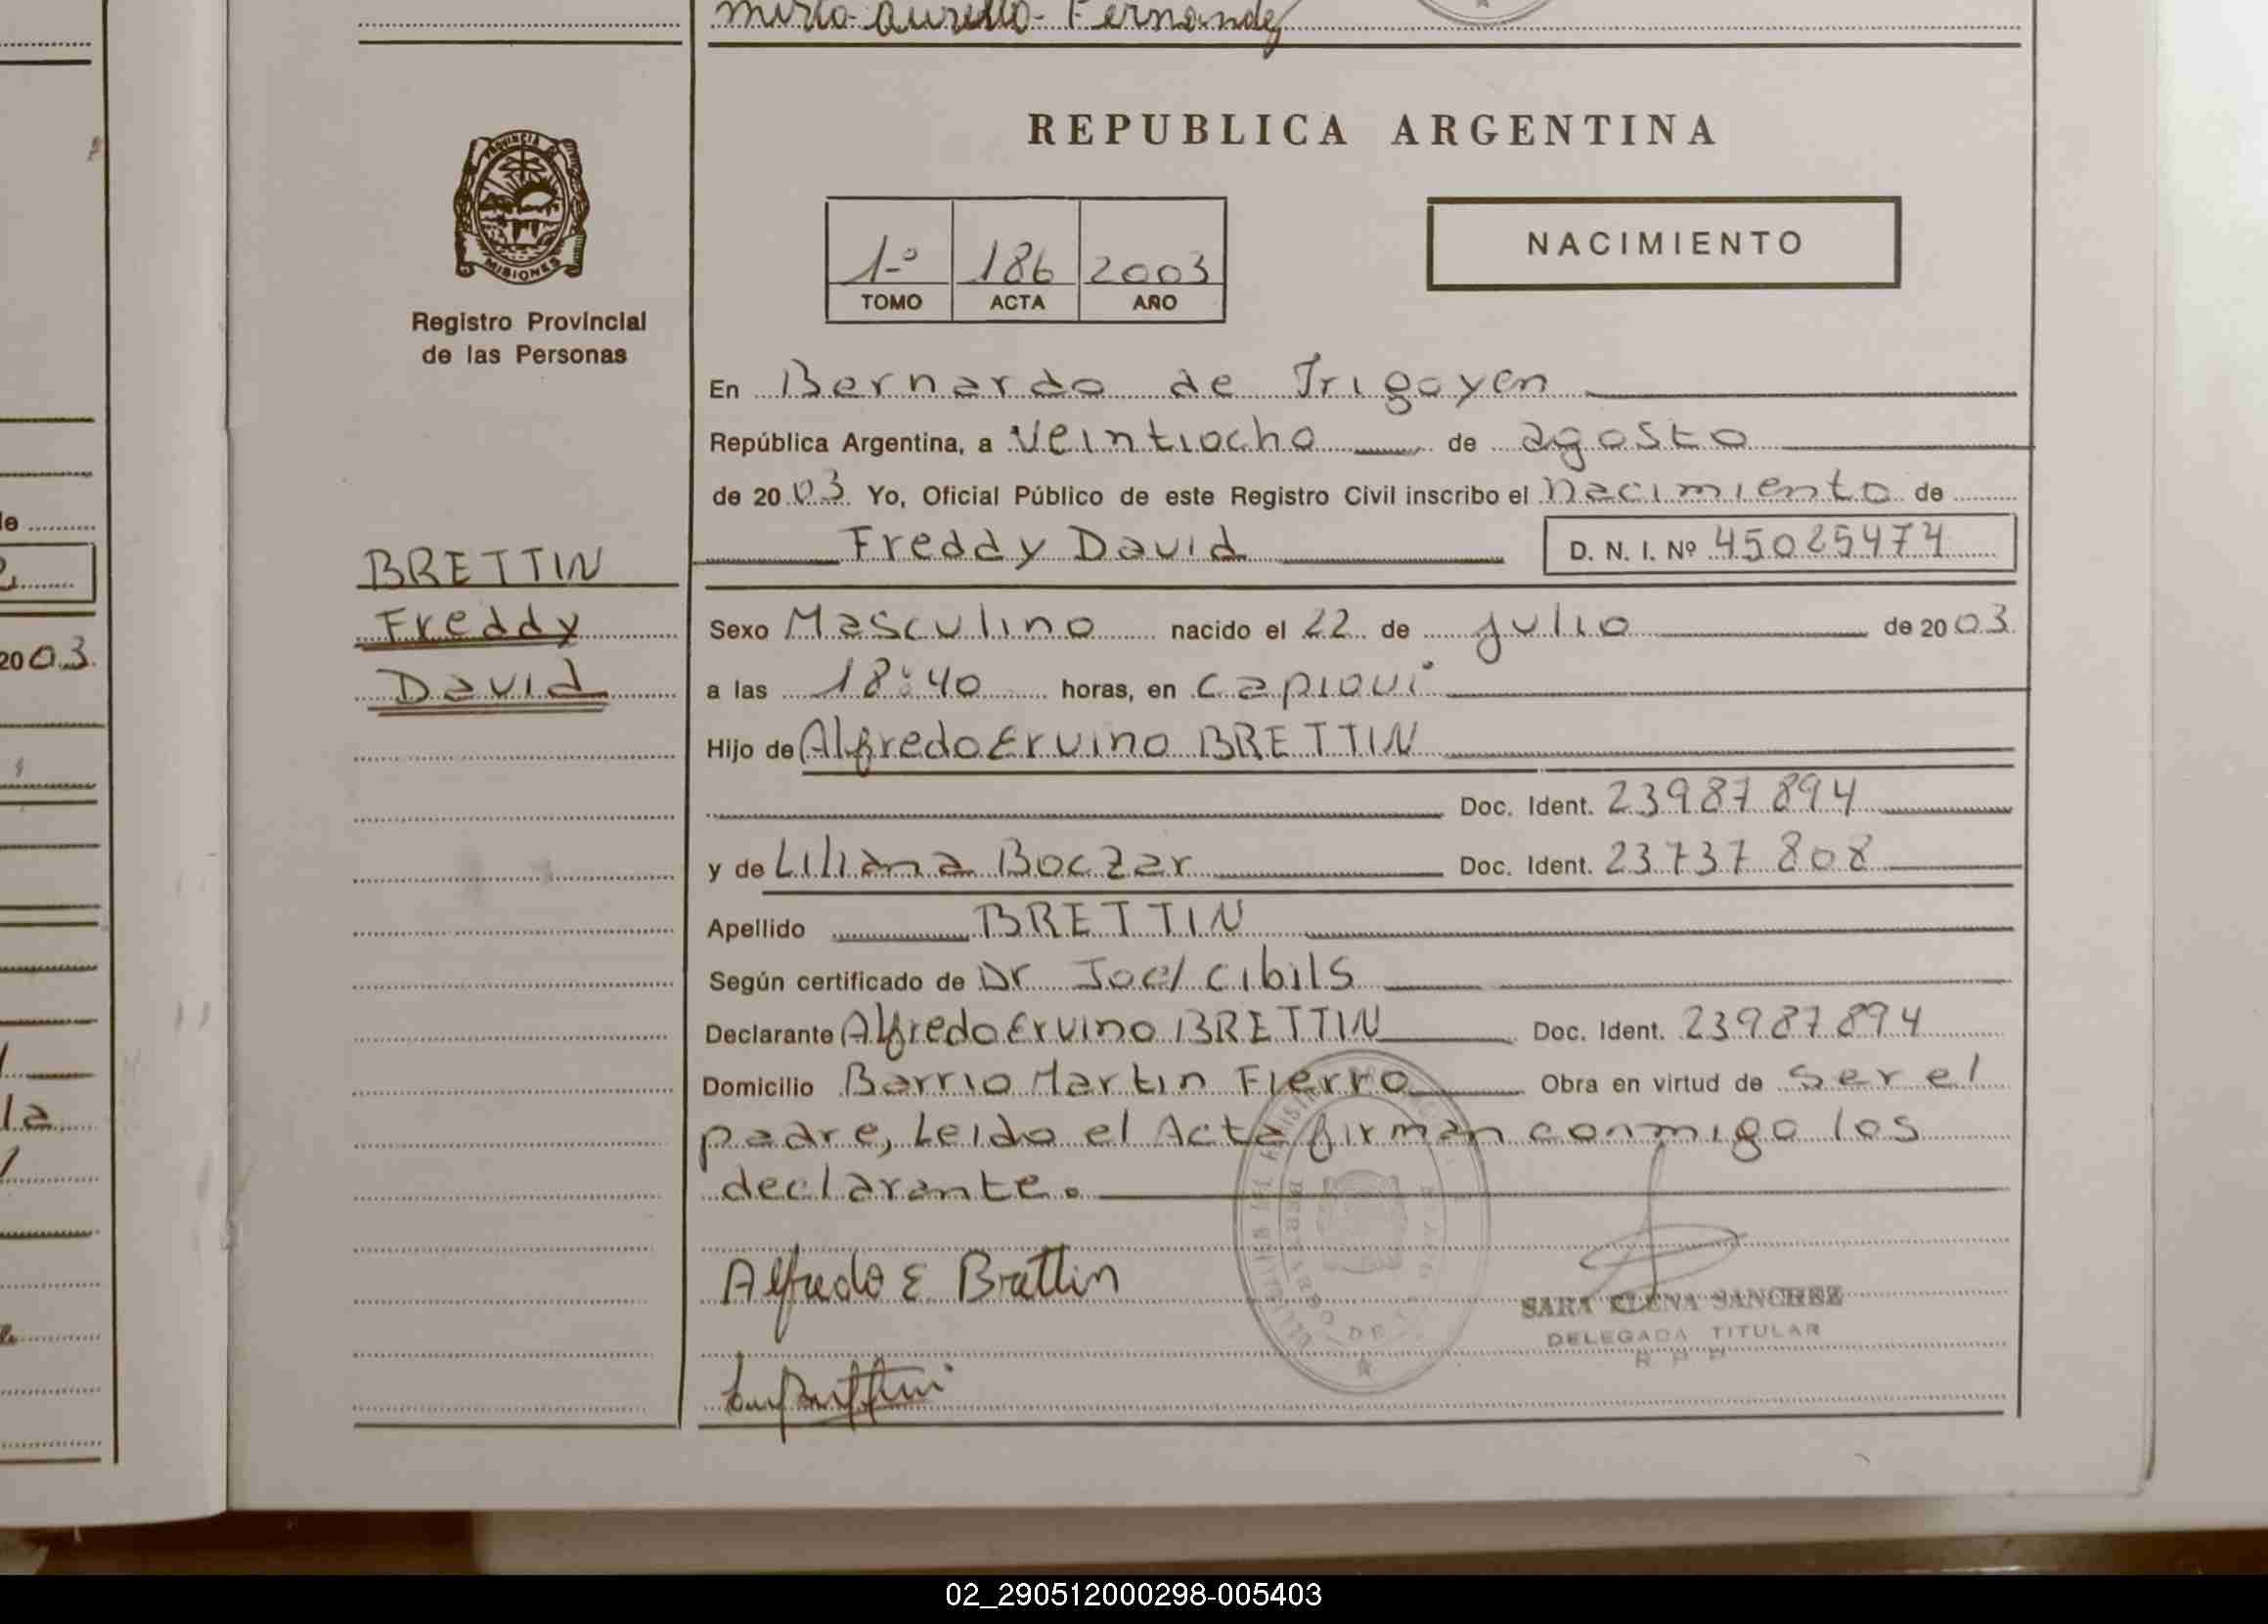 mirto aurelio Fernandez
PROVINCIA DE
MISIONES
Registro Provincial
de las Personas
REPUBLICA ARGENTINA
1º 186 2003
TOMO ACTA AÑO
NACIMIENTO
En Bernardo de Irigoyen
República Argentina, a Veintiocho de agosto
de 20 03 Yo, Oficial Público de este Registro Civil inscribo el nacimiento de
Freddy David D. N. I. Nº 45025474
BRETTIN
Freddy
David
Sexo Masculino nacido el 22 de julio de 20 03
a las 18:40 horas, en Capioví
Hijo de Alfredo Ervino BRETTIN
Doc. Ident. 23987894
y de Liliana Boczar Doc. Ident. 23737808
Apellido BRETTIN
Según certificado de Dr Joel Cibils
Declarante Alfredo Ervino BRETTIN Doc. Ident. 23987894
Domicilio Barrio Martin Fierro Obra en virtud de Ser el
padre, Leido el Acta firman conmigo los
declarante.
Alfredo E Brettin
SARA ELENA SANCHEZ
DELEGADA TITULAR
R P P
2003.
la
02_290512000298-005403